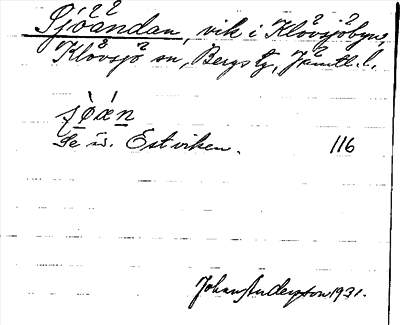 Sjöändan, vik i Klövsjöbyn,
Klövsjö sn, Bergs tg, Jämtl. l.
sø̀æ̀n
Se ö. Estviken. 116
Johan Anderson 1931.